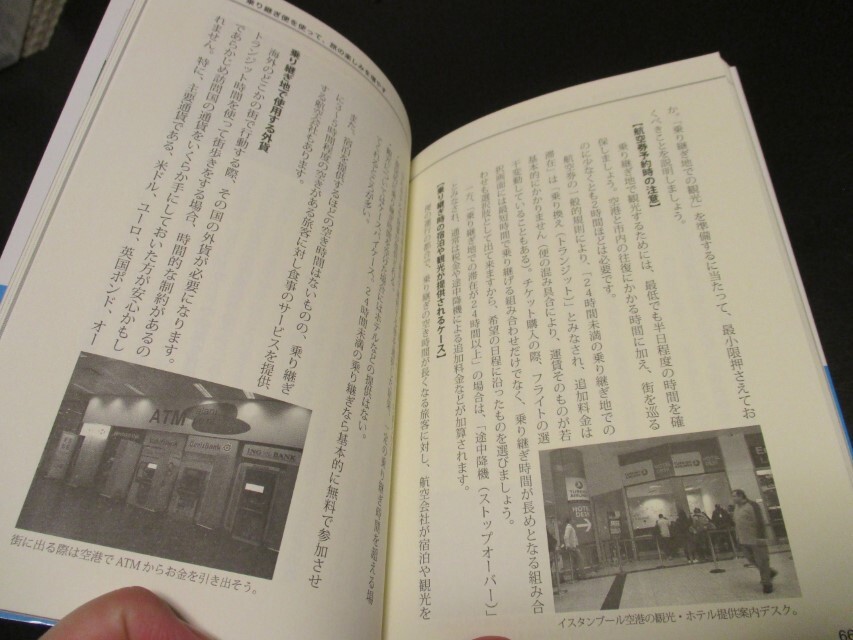 か。「乗り継ぎ地での観光」を準備するに当たって、最小限押さえてお
くべきことを説明しましょう。
【航空券予約時の注意】
乗り継ぎ地で観光するためには、最低でも半日程度の時間を確
保しましょう。空港と市内の往復にかかる時間に加え、街を巡る
のに少なくとも2時間ほどは必要です。
航空券の一般的規則により、「24時間未満の乗り継ぎ地での
滞在」は「乗り換え(トランジット)」とみなされ、追加料金は
基本的にかかりません(便の混み具合により、運賃そのものが若
干変動していることもある)。チケット購入の際、フライトの選
択画面には最短時間で乗り継げる組み合わせだけでなく、乗り継ぎ時間が長めとなる組み合
わせも選択肢として出て来ますから、希望の日程に沿ったものを選びましょう。
一方、「乗り継ぎ地での滞在が24時間以上」の場合は、「途中降機(ストップオーバー)」
とみなされ、通常は税金や途中降機による追加料金などが加算されます。
【乗り継ぎ時の宿泊や観光が提供されるケース】
乗り継ぎの空き時間が長くなる旅客に対し、航空会社が宿泊や観光を
TURKISH AIRLINES
HOTEL DESK
イスタンブール空港の観光・ホテル提供案内デスク。
66
乗り継ぎ便を使って、旅の楽しみを増やす
24時間未満の乗り継ぎなら基本的に無料で参加させ
また、宿泊を提供するほどの空き時間はないものの、乗り継ぎ
に
時間程度の空きがある旅客に対し食事のサービスを提供
する航空会社もあります。
乗り継ぎ地で使用する外貨
海外のどこかの街で行動する際、その国の外貨が必要になります。
トランジット時間を使って街歩きをする場合、時間的な制約があるの
であらかじめ訪問国の通貨をいくらか手にしておいた方が安心かもし
れません。特に、主要通貨である、米ドル、ユーロ、英国ポンド、オー
ATM
Garanti
ING BANK
街に出る際は空港でATMからお金を引き出そう。